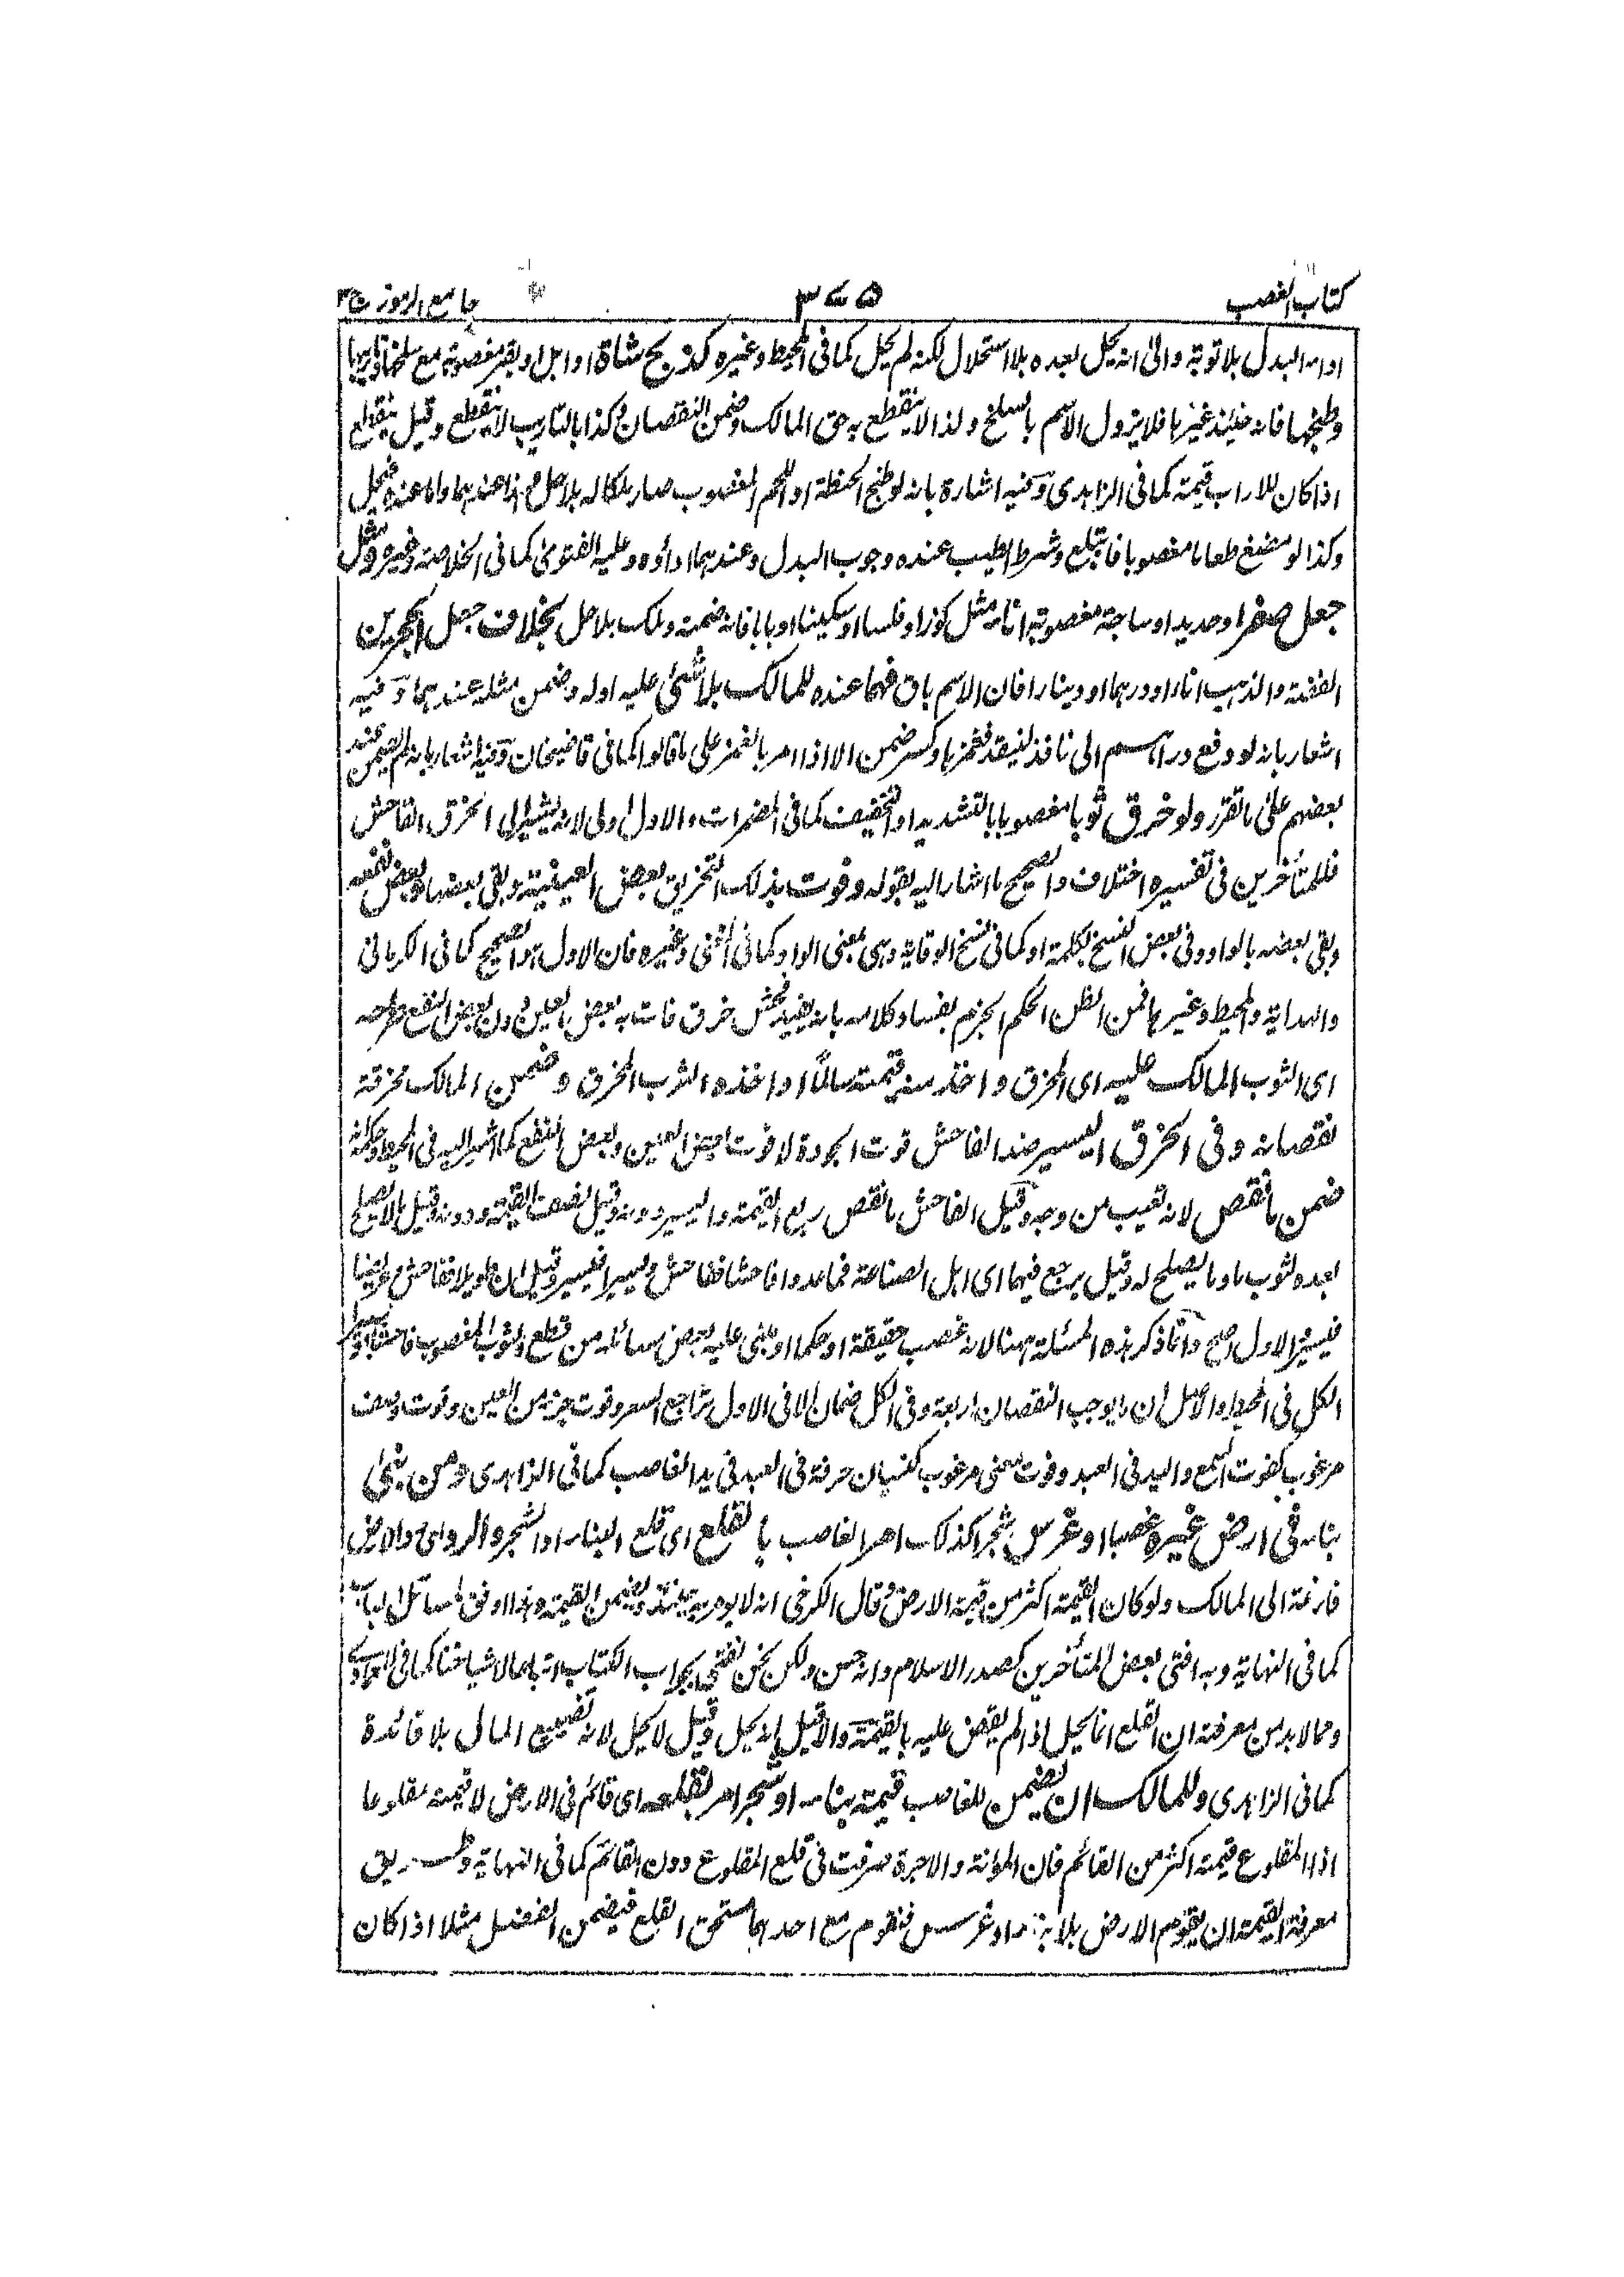 كتاب الغصب ٣٧٥ جامع الرموز ج ٣
اداء البدل بلا توبة والى انه يحل بعده بلا استحلال لكنه لم يحل كما فى المحيط وغيره كذبح شاة او ابل او بقر مغصوبة مع سلخها وتاريبها
وطبخها فانه حينئذ غيرها فلا يزول الاسم بالسلخ ولذا لا ينقطع به حق المالك وضمن النقصان وكذا بالتاريب لا ينقطع وقيل ينقطع
اذا كان للاراب قيمة كما فى الزاهدى وفيه اشارة بانه لو طبخ الحنطة او اللحم المغصوب صار ملكا له بلا حل هذا عندهما واما عنده فيحل
وكذا لو مضغ طعاما مغصوبا فابتلع وشرط الطيب عنده وجوب البدل وعندهما اداؤه وعليه الفتوى كما فى الخلاصة وغيره ومثل
جعل صفر او حديد او ساجة مغصوبة اناء مثل كوز او فلسا او سكينا او بابا فانه ضمنه وملك بلا حل بخلاف جعل الحجرين
الفضة والذهب اناء او درهما او دينارا فان الاسم باق فهما عنده للمالك بلا شئ عليه او له وضمن مثله عندهما وفيه
اشعار بانه لو دفع دراهم الى ناقد لينقد فغمزها وكسر ضمن الا اذا امر بالغمز على ما قالوا كما فى قاضيخان وفيه اشعار بانه لم يضمن عند
بعضهم على ما تقرر ولو خرق ثوبا مغصوبا بالتشديد او التخفيف كما فى المضمرات والاول اولى لانه يشير الى الخرق الفاحش
فللمتأخرين فى تفسيره اختلاف والصحيح ما اشار اليه بقوله وفوت بذلك التخريق بعض العين وبقى بعضها وبعض نفعه
وبقى بعضه بالواو وفى بعض النسخ بكلمة او كما فى نسخ الوقاية وهى بمعنى الواو كما فى المغنى وغيره فان الاول هو الصحيح كما فى الكرمانى
والهداية والمحيط وغيرها فمن الظن الحكم الجزم بفساد كلامه بانه يفيد فحش خرق فات به بعض العين دون بعض النفع طرحه
اى الثوب المالك عليه اى المخرق واخذ منه قيمته سالما او اخذه الثوب المخرق وضمن المالك مخرقه
نقصانه وفى الخرق اليسير ضد الفاحش فوت الجودة لا فوت بعض العين وبعض النفع كما اشير اليه فى المحيط وحكمه
ضمن ما نقص لانه تعيب من وجه وقيل الفاحش ما نقص ربع القيمة واليسير دونه وقيل نصف القيمة ودونه وقيل ما لا يصلح
بعده لثوب ما وما يصلح له وقيل يرجع فيهما اى اهل الصناعة فما عدوا فاحشا ففاحش ويسيرا فيسير وقيل ان طويلا ففاحش وعريضا
فيسير الاول اصح وانما ذكر هذه المسئلة ههنا لانه غصب حقيقة او حكما او بنى عليه بعض مسائله من قطع الثوب المغصوب فاحشا او يسيرا
الكل فى المحيط والاصل ان ما يوجب النقصان اربعة وفى الكل ضمان الا فى الاول تراجع السعر وفوت جزء من العين وفوت وصف
مرغوب كفوت السمع واليد فى العبد وفوت معنى مرغوب كنسيان حرفة فى العبد فى يد الغاصب كما فى الزاهدى ومن بنى
بناء فى ارض غيره غصبا او غرس شجرا كذلك امر الغاصب بالقلع اى قلع البناء او الشجر والرد اى رد الارض
فارغة الى المالك ولو كان القيمة اكثر من قيمة الارض وقال الكرخى انه لا يؤمر به حينئذ ويضمن القيمة وهذا اوفق لمسائل الباب
كما فى النهاية وبه افتى بعض المتأخرين كصدر الاسلام وانه حسن ولكن نحن نفتى بجواب الكتاب اتباعا لاشياخنا كما فى العمادى
ومما لا بد من معرفته ان القلع انما يحل اذا لم يقض عليه بالقيمة والا قيل انه يحل وقيل لا يحل لانه تضييع المال بلا فائدة
كما فى الزاهدى وللمالك ان يضمن للغاصب قيمة بناء او شجر امر بقلعه اى قائم فى الارض لا قيمته مقلوعا
اذ المقلوع قيمته اكثر من القائم فان المؤنة والاجرة صرفت فى قلع المقلوع دون القائم كما فى النهاية وطريق
معرفة القيمة ان يقوم الارض بلا بناء او غرس فتقوم مع احدهما مستحق القلع فيضمن الفضل مثلا اذا كان